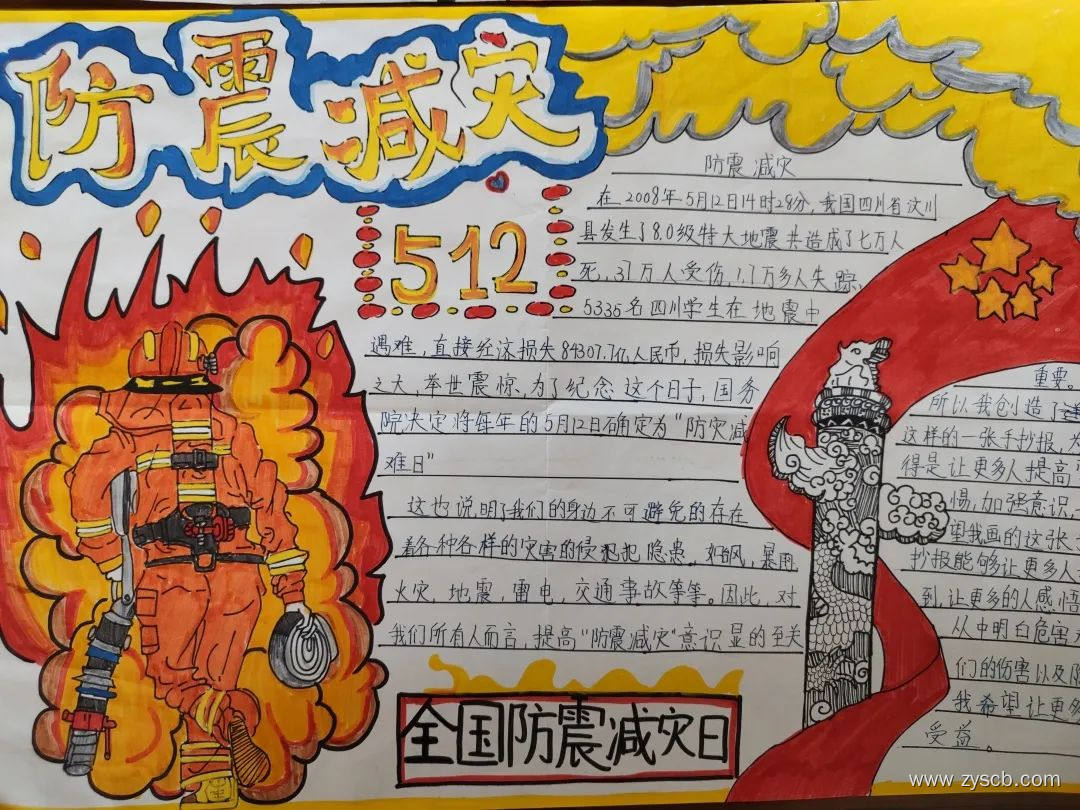 防震减灾
512
防震减灾
在2008年5月12日14时28分,我国四川省汶川
县发生了8.0级特大地震共造成了七万人
死,37万人受伤,1.7万多人失踪,
5335名四川学生在地震中
遇难,直接经济损失84307.7亿人民币,损失影响
之大,举世震惊,为了纪念这个日子,国务
院决定将每年的5月12日确定为“防灾减
难日”
这也说明了我们的身边不可避免的存在
着各种各样的灾害的侵犯把隐患。如台风,暴雨
火灾,地震,雷电,交通事故等等。因此,对
我们所有人而言,提高“防震减灾”意识显的至关
重要。
所以我创造了
这样的一张手抄报,
得是让更多人提高
惕,加强意识,
望我画的这张
抄报能够让更多人
到,让更多的人感悟
从中明白危害
们的伤害以及
我希望让更多
受益。
全国防震减灾日
www.zyscb.com